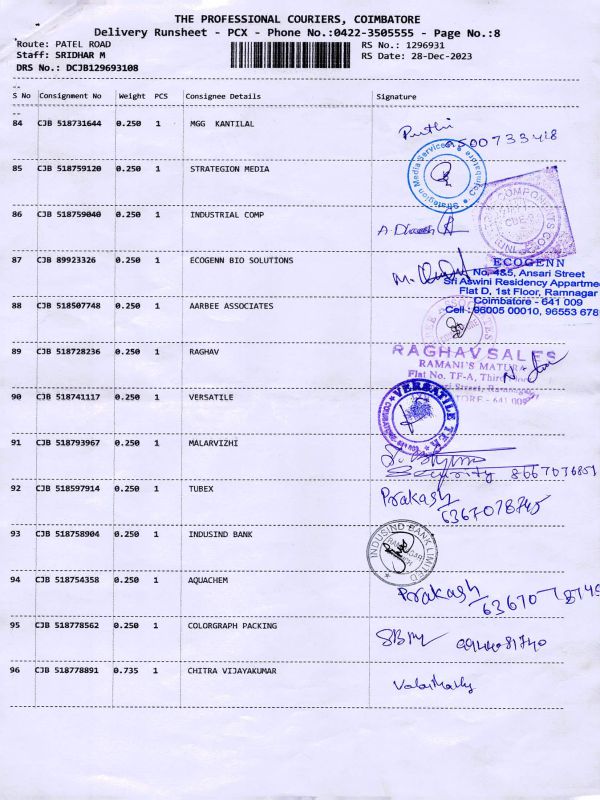 THE PROFESSIONAL COURIERS, COIMBATORE
Delivery Runsheet - PCX - Phone No.:0422-3505555 - Page No.:8
Route: PATEL ROAD RS No.: 1296931
Staff: SRIDHAR M RS Date: 28-Dec-2023
DRS No.: DCJB129693108
S No Consignment No Weight PCS Consignee Details Signature
84 CJB 518731644 0.250 1 MGG KANTILAL
85 CJB 518759120 0.250 1 STRATEGION MEDIA
Strategion Media Services
Coimbatore
86 CJB 518759040 0.250 1 INDUSTRIAL COMP
COMPONENTS
87 CJB 89923326 0.250 1 ECOGENN BIO SOLUTIONS
ECOGENN
No. 4&5, Ansari Street
Sri Aswini Residency Appartme
Flat D, 1st Floor, Ramnagar
Coimbatore - 641 009
Cell : 96005 00010, 96553 678
88 CJB 518507748 0.250 1 AARBEE ASSOCIATES
89 CJB 518728236 0.250 1 RAGHAV
RAGHAV SALES
RAMANI'S
Flat No. TF-A, Third
641 009
90 CJB 518741117 0.250 1 VERSATILE
VERSATILE TEK
91 CJB 518793967 0.250 1 MALARVIZHI
Security
92 CJB 518597914 0.250 1 TUBEX
Prakash
6367078745
93 CJB 518758904 0.250 1 INDUSIND BANK
INDUSIND BANK LIMITED
94 CJB 518754358 0.250 1 AQUACHEM
Prakash
95 CJB 518778562 0.250 1 COLORGRAPH PACKING
96 CJB 518778891 0.735 1 CHITRA VIJAYAKUMAR